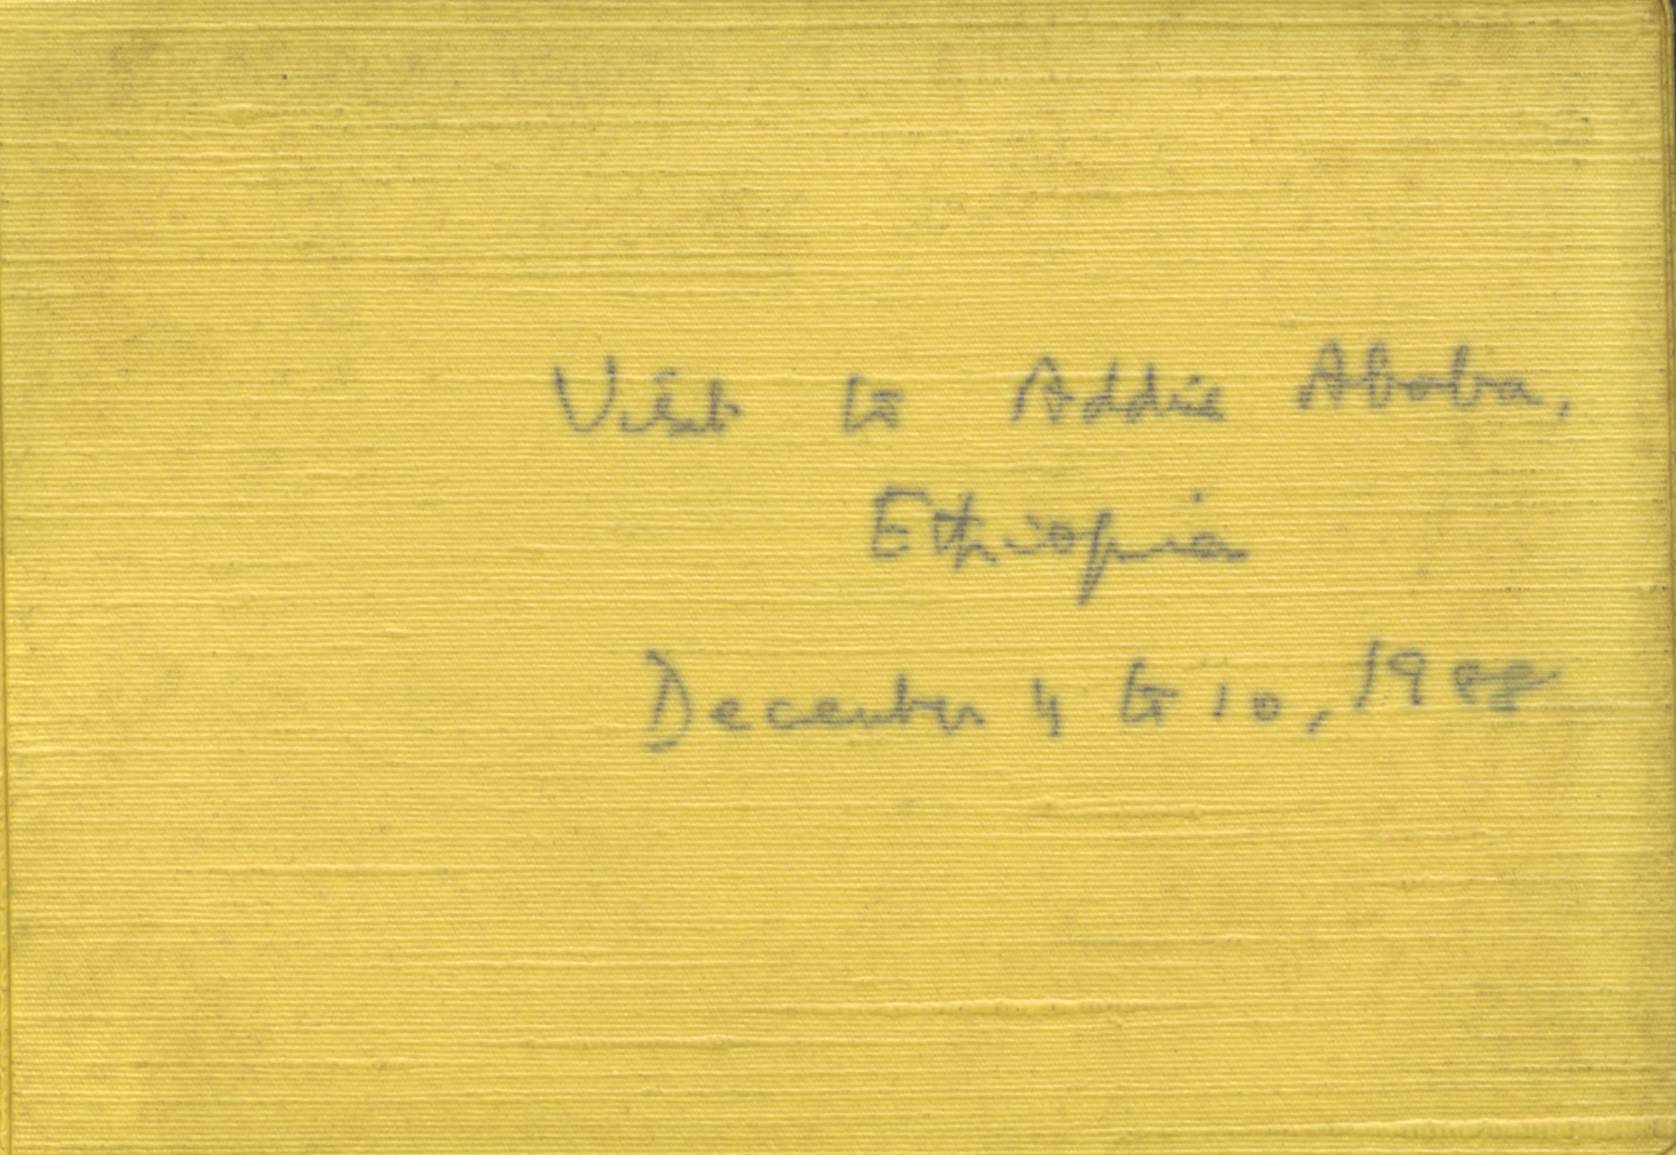 Visit to Addis Ababa,
Ethiopia
December 4 to 10, 1988